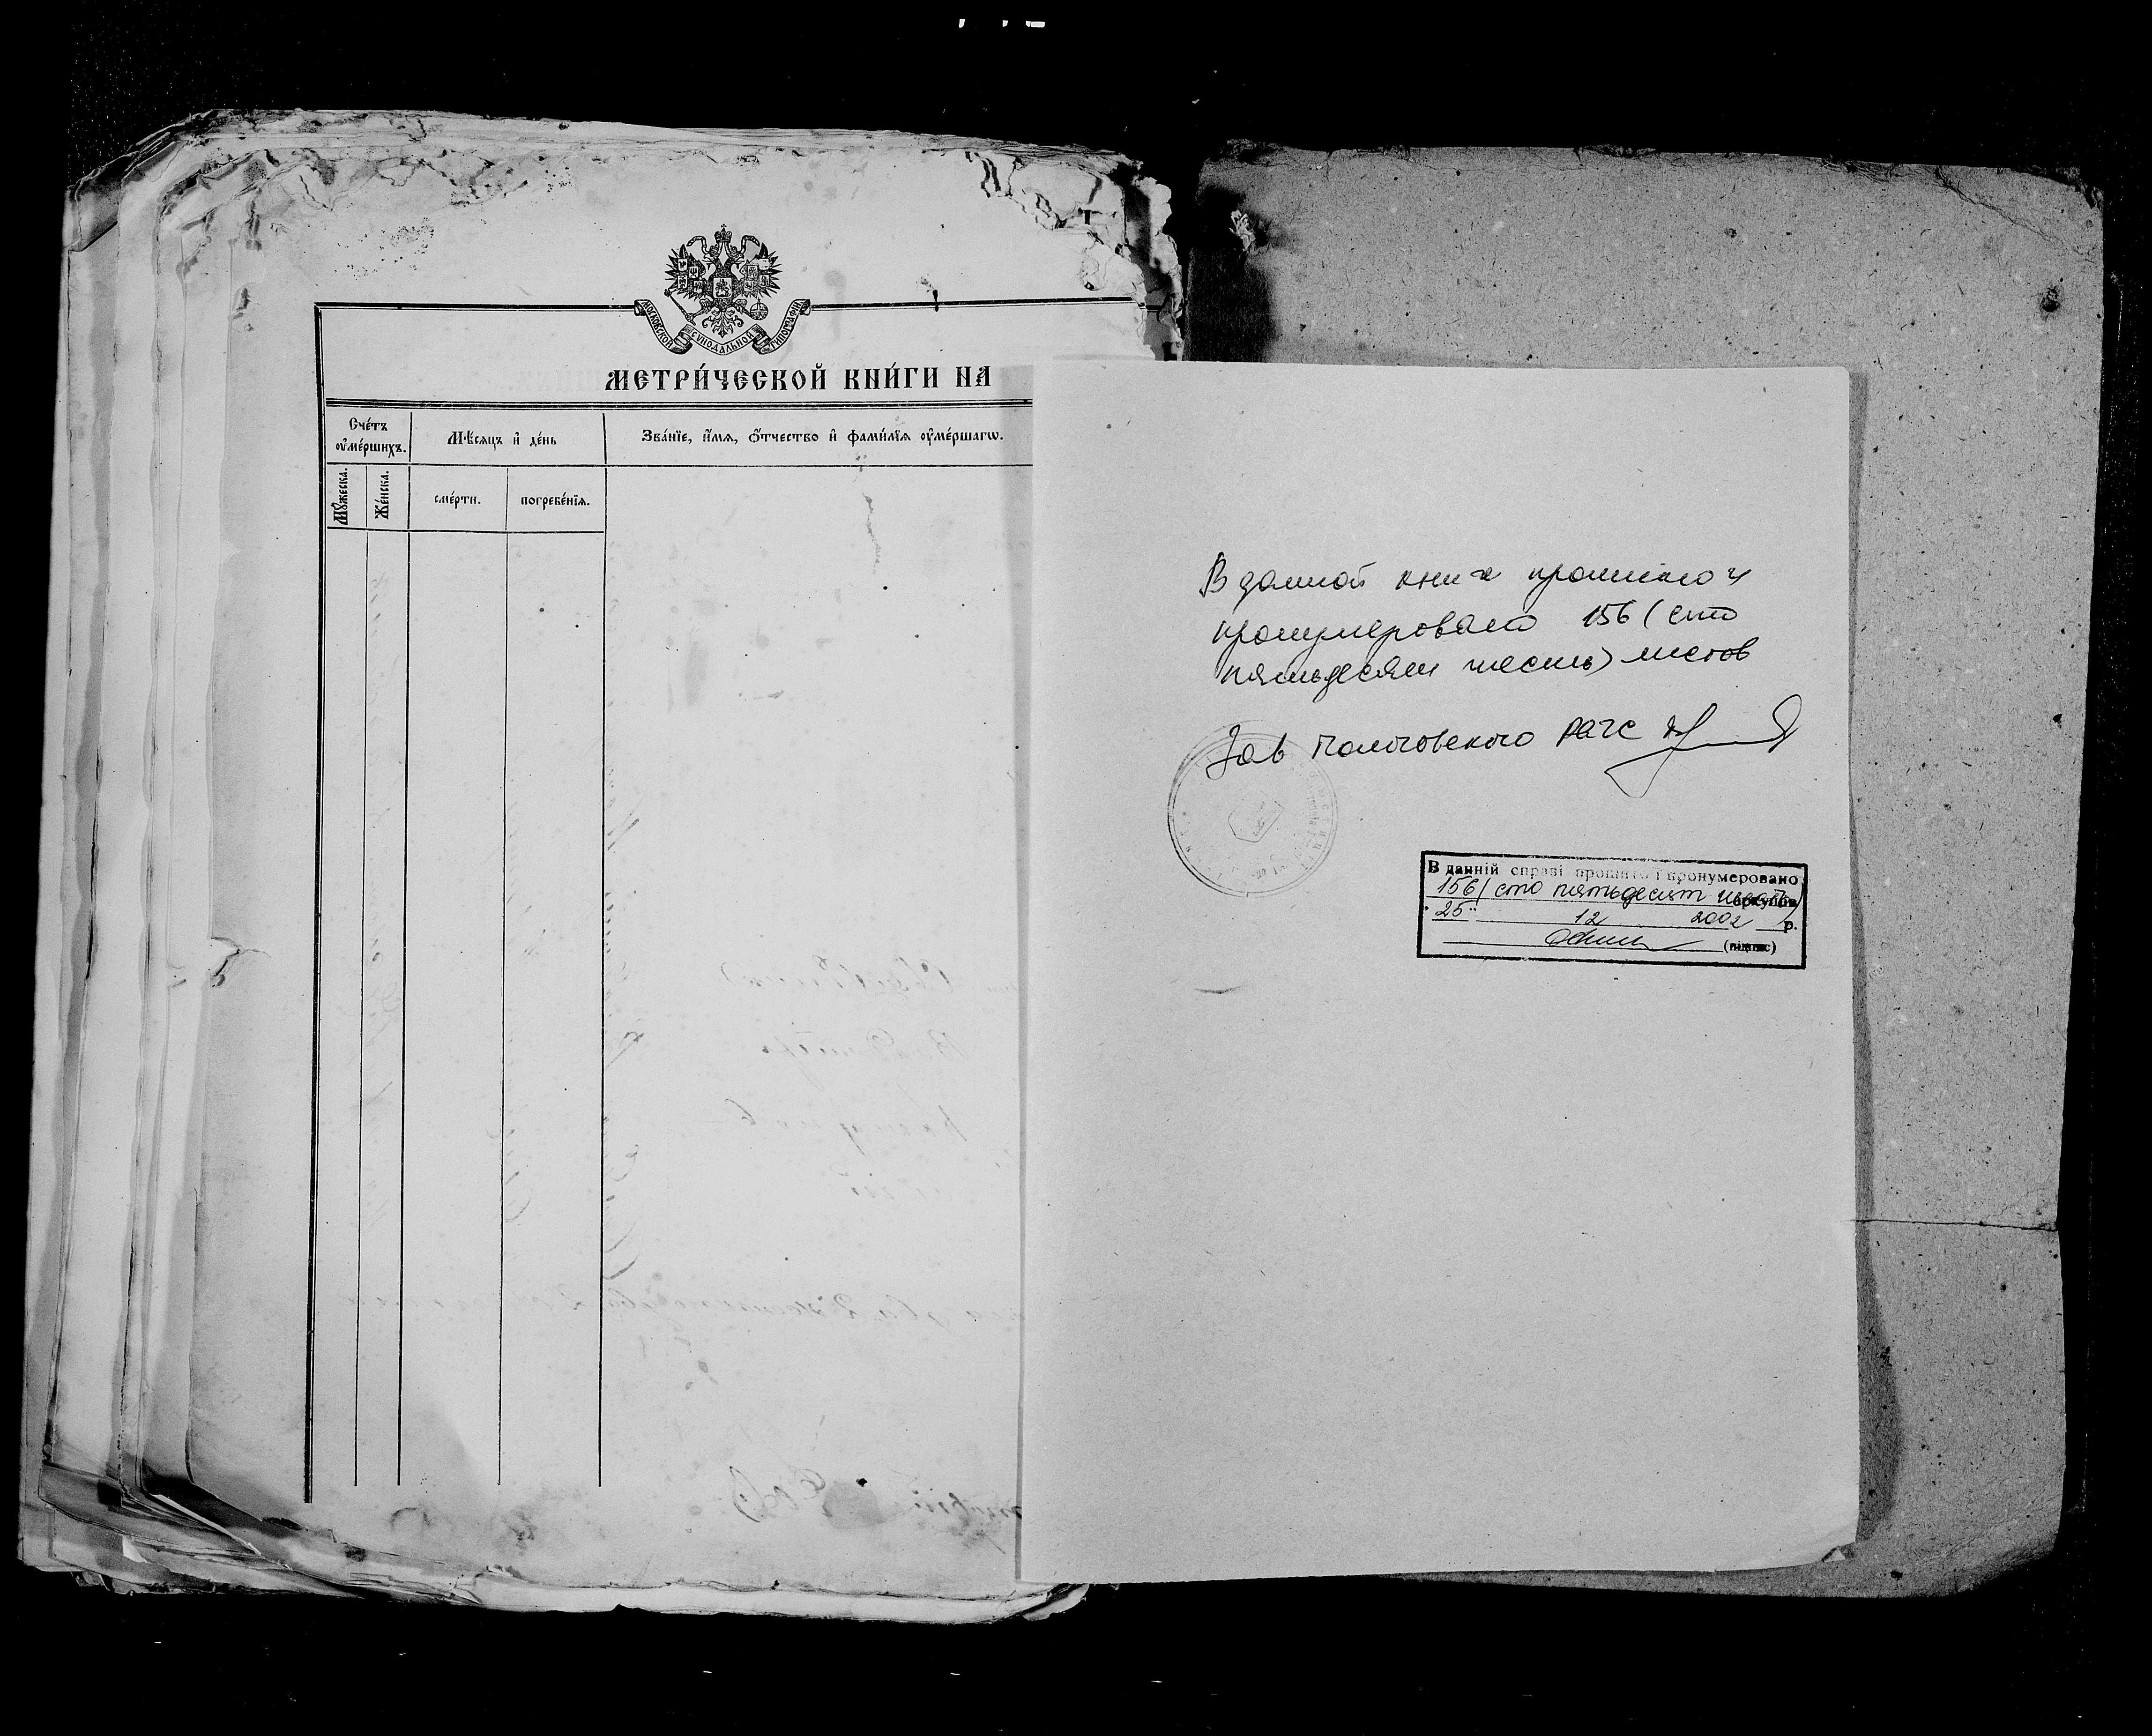 МОСКОВСКОЙ СѴНОДАЛЬНОЙ ТИПОГРАФІИ
МЕТРИ́ЧЕСКОЙ КНИ́ГИ НА
Сче́тъ
оу҆ме́ршихъ.
Мѣ́сяцъ и҆ де́нь
Зва́нїе, и҆́мѧ, ѻ҆́тчество и҆ фами́лїѧ оу҆ме́ршагѡ.
Мꙋ́жеска.
Же́нска.
сме́рти.
погребе́нїѧ.
В данной книге прошито и
пронумеровано 156 (сто
пятьдесят шесть) листов
Зав Пологовского РАГС
В данній справі прошито і пронумеровано
156 (сто пятьдесят шесть) аркушів
"25" 12 2002 р.
(підпис)